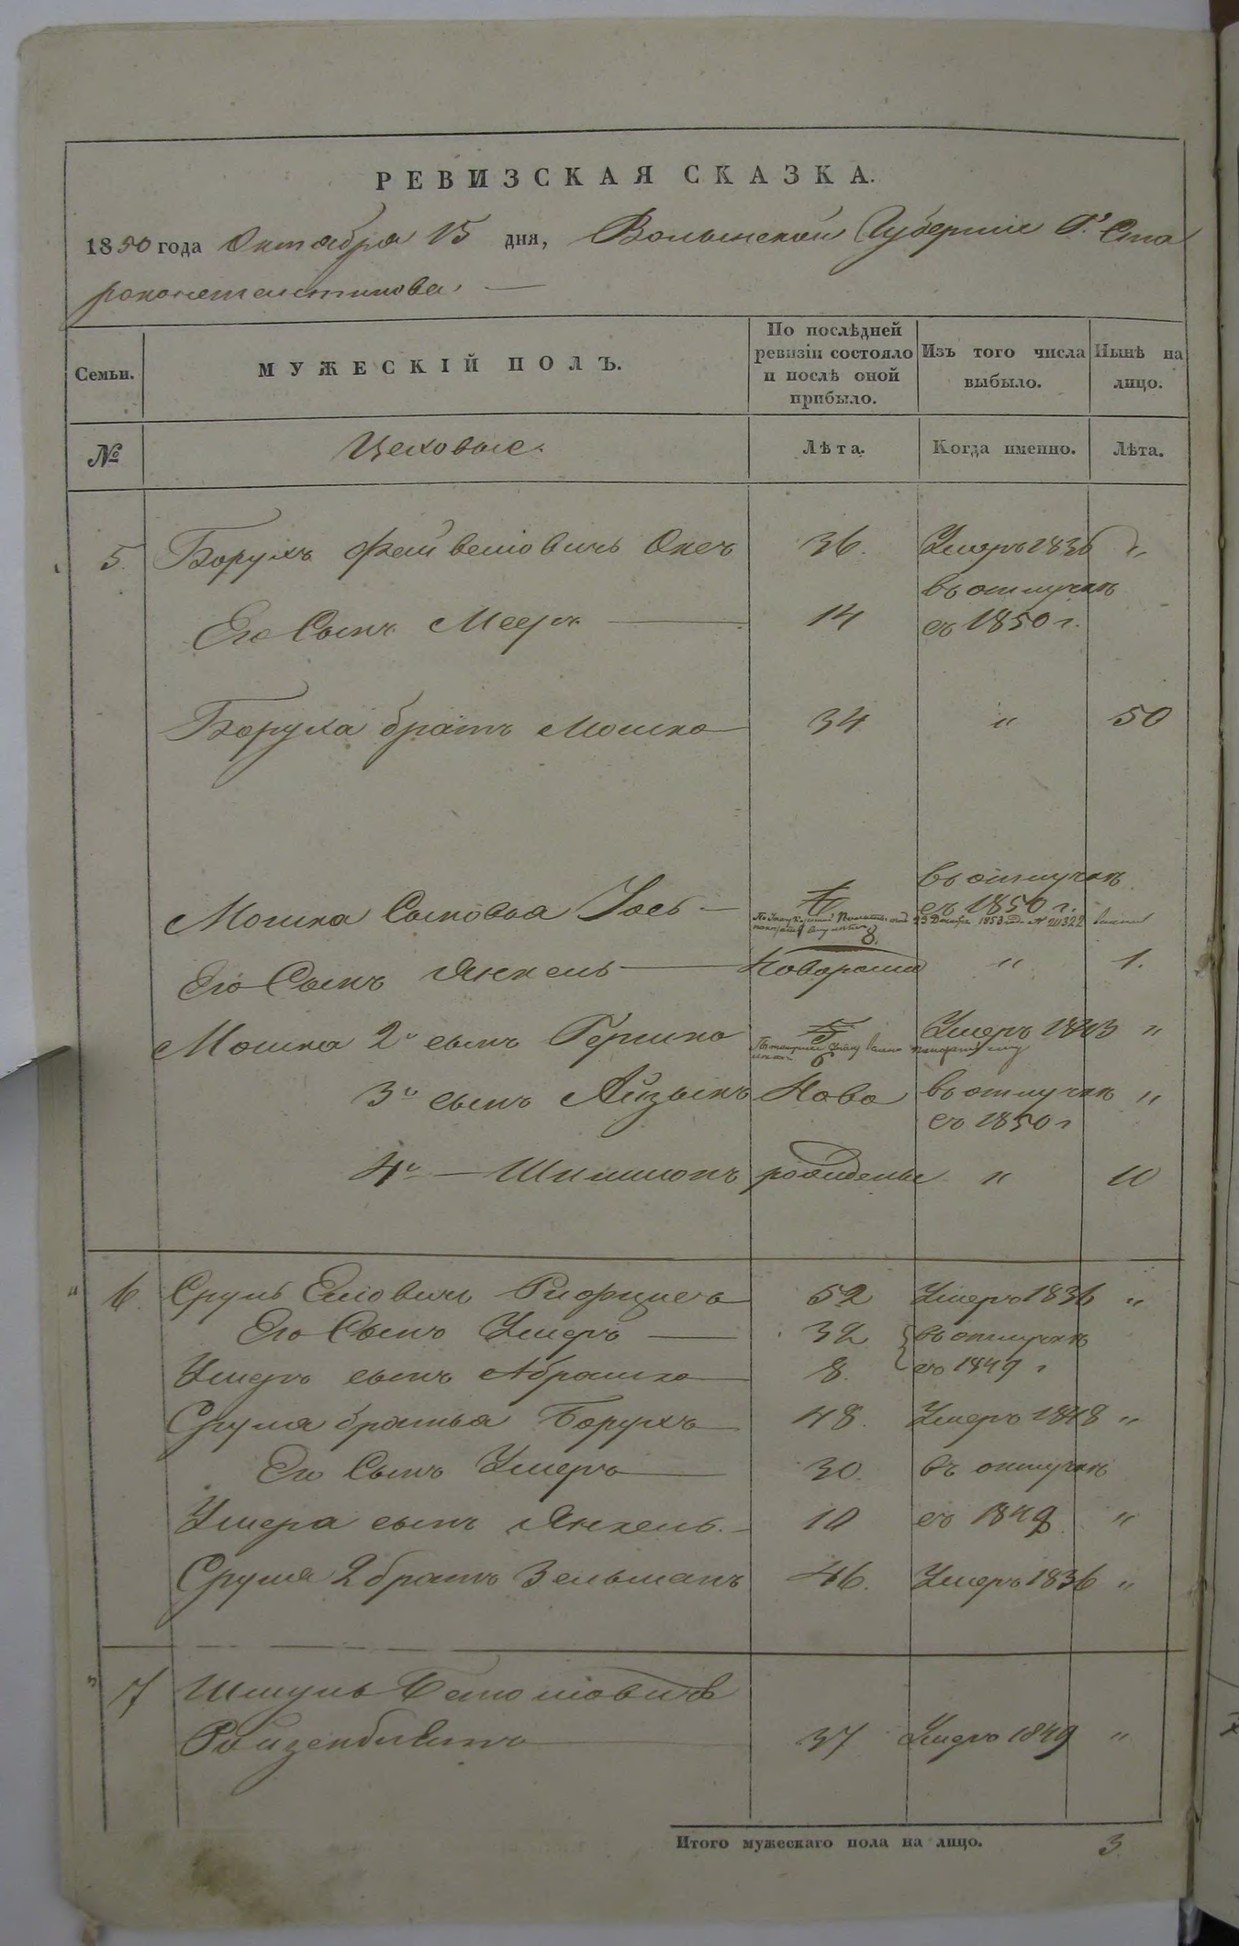 РЕВИЗСКАЯ СКАЗКА.
1850 года Октября 15 дня, Волынской Губерніи Г. Ста
роконстантинова.
Семьи.
МУЖЕСКІЙ ПОЛЪ.
По послѣдней ревизіи состояло и послѣ оной прибыло.
Изъ того числа выбыло.
Нынѣ на лицо.
№
Цеховые.
Лѣта.
Когда именно.
Лѣта.
5. Борухъ Фейвелiовичъ 36. Умеръ 1836 "
Его Сынъ Мееръ 14 въ отлучкѣ съ 1850 г.
Боруха братъ Мошко 34 " 50
Мошка Сыновья Іось въ отлучкѣ съ 1850 г.
23 Декабря 1853 года №
8.
Его Сынъ Янкель " 1.
Мошка 2й сынъ Гершко 5 Умеръ 1843 "
3й сынъ Айзыкъ Ново въ отлучкѣ съ 1850 г "
4й — Шимшонъ рожденные " 10
6. Сруль Еліовичъ 52 Умеръ 1836 "
Его Сынъ Умеръ 32 въ отлучкѣ
Умера сынъ Абрамко 8. съ 1849 г
Сруля братья Борухъ 48. Умеръ 1848 "
Его Сынъ Умеръ 30. въ отлучкѣ
Умера сынъ Янкель. 10 съ 1849 "
Сруля 2 братъ Зельманъ 46. Умеръ 1836 "
7 Шмуль
37 Умеръ 1849 "
Итого мужескаго пола на лицо. 3